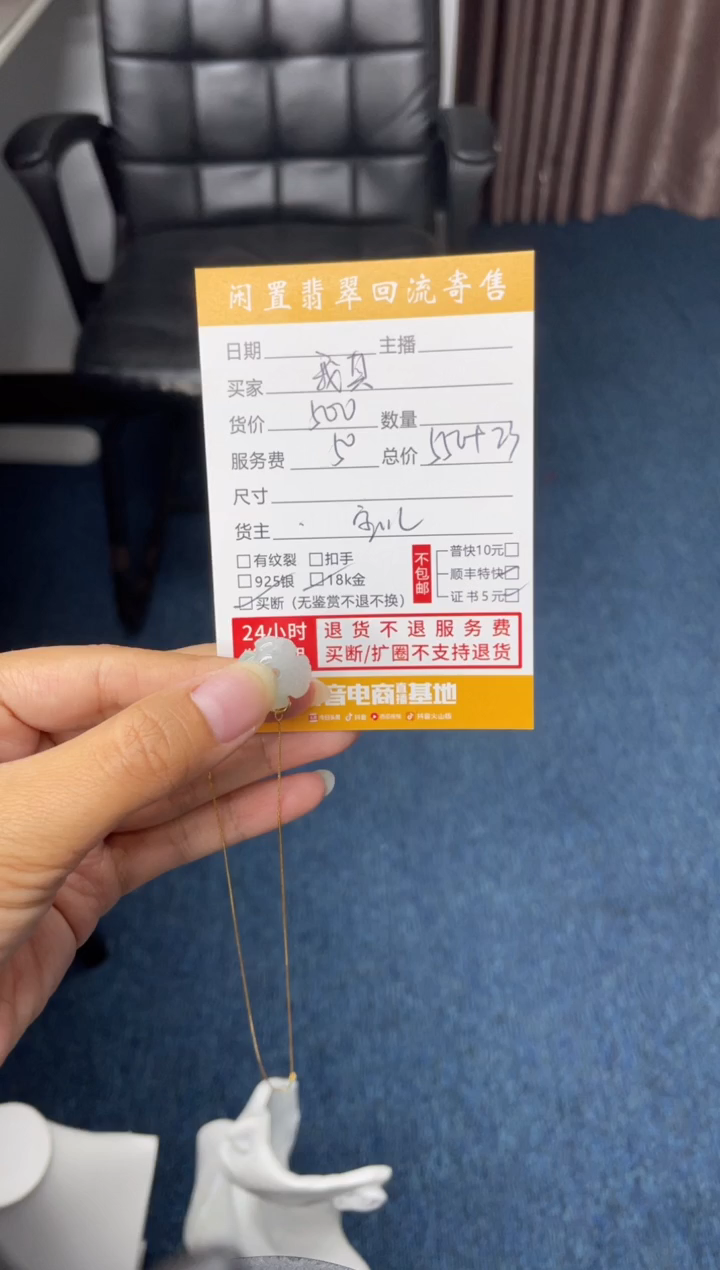 闲置翡翠回流寄售
日期 主播
买家
货价 500 数量
服务费 50 总价 550+23
尺寸
货主
□有纹裂 □扣手
□925银 □18k金
□买断（无鉴赏不退不换）
不包邮
普快10元□
顺丰特快□
证书5元□
24小时
退货不退服务费
买断/扩圈不支持退货
音电商直播基地